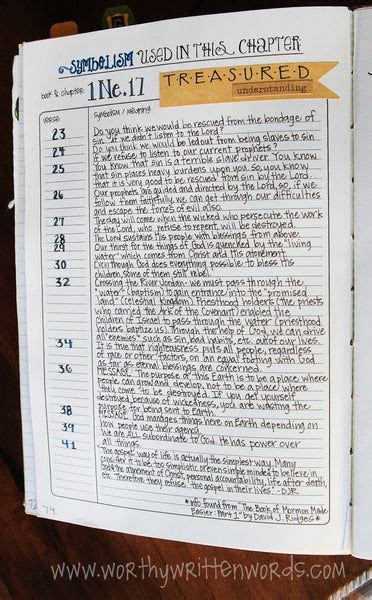 SYMBOLISM USED IN THIS CHAPTER
book & chapter: 1 Ne. 17
TREASURED
understanding
VERSE symbolism / meaning
23 Do you think we would be rescued from the bondage of
sin if we didn't listen to the Lord?
24 Do you think we would be led out from being slaves to sin
if we refuse to listen to our current prophets?
25 You know that sin is a terrible slave driver. You know
that sin places heavy burdens upon you. So, you know
that it is very good to be rescued from sin by the Lord.
26 Our prophets are guided and directed by the Lord, so, if we
follow them faithfully, we can get through our difficulties
and escape the forces of evil also.
27 The day will come when the wicked who persecute the work
of the Lord, who refuse to repent, will be destroyed.
28 The Lord sustains His people with blessings from above.
29 Our thirst for the things of God is quenched by the "living
water" which comes from Christ and His atonement.
30 Even though God does everything possible to bless His
children, some of them still rebel.
32 Crossing the River Jordan - we must pass through the
"water" (baptism) to gain entrance into the "promised
land" (celestial kingdom). Priesthood holders (the priests
who carried the Ark of the Covenant) enabled the
children of Israel to pass through the water (priesthood
holders baptize us). Through the help of God, we can drive
all "enemies" such as sin, bad habits, etc. out of our lives.
34 It is true that righteousness puts all people, regardless
of race or other factors, on an equal footing with God
as far as eternal blessings are concerned.
36 MESSAGE: The purpose of this Earth is to be a place where
people can grow and develop, not to be a place where
they come to be destroyed. If you get yourself
destroyed because of wickedness, you are wasting the
purpose for being sent to Earth.
38 MESSAGE: God manages things here on Earth depending on
how people use their agency.
39 We are ALL subordinate to God. He has power over
all things.
41 The gospel way of life is actually the simplest way. Many
consider it to be too simplistic or even simple minded to believe in
God, the atonement of Christ, personal accountability, life after death,
etc. Therefore they refuse "the gospel in their lives". - DJR
*info found from "The Book of Mormon Made
Easier: Part 1" by David J. Ridges*
74
WWW.WORTHYWRITTENWORDS.COM